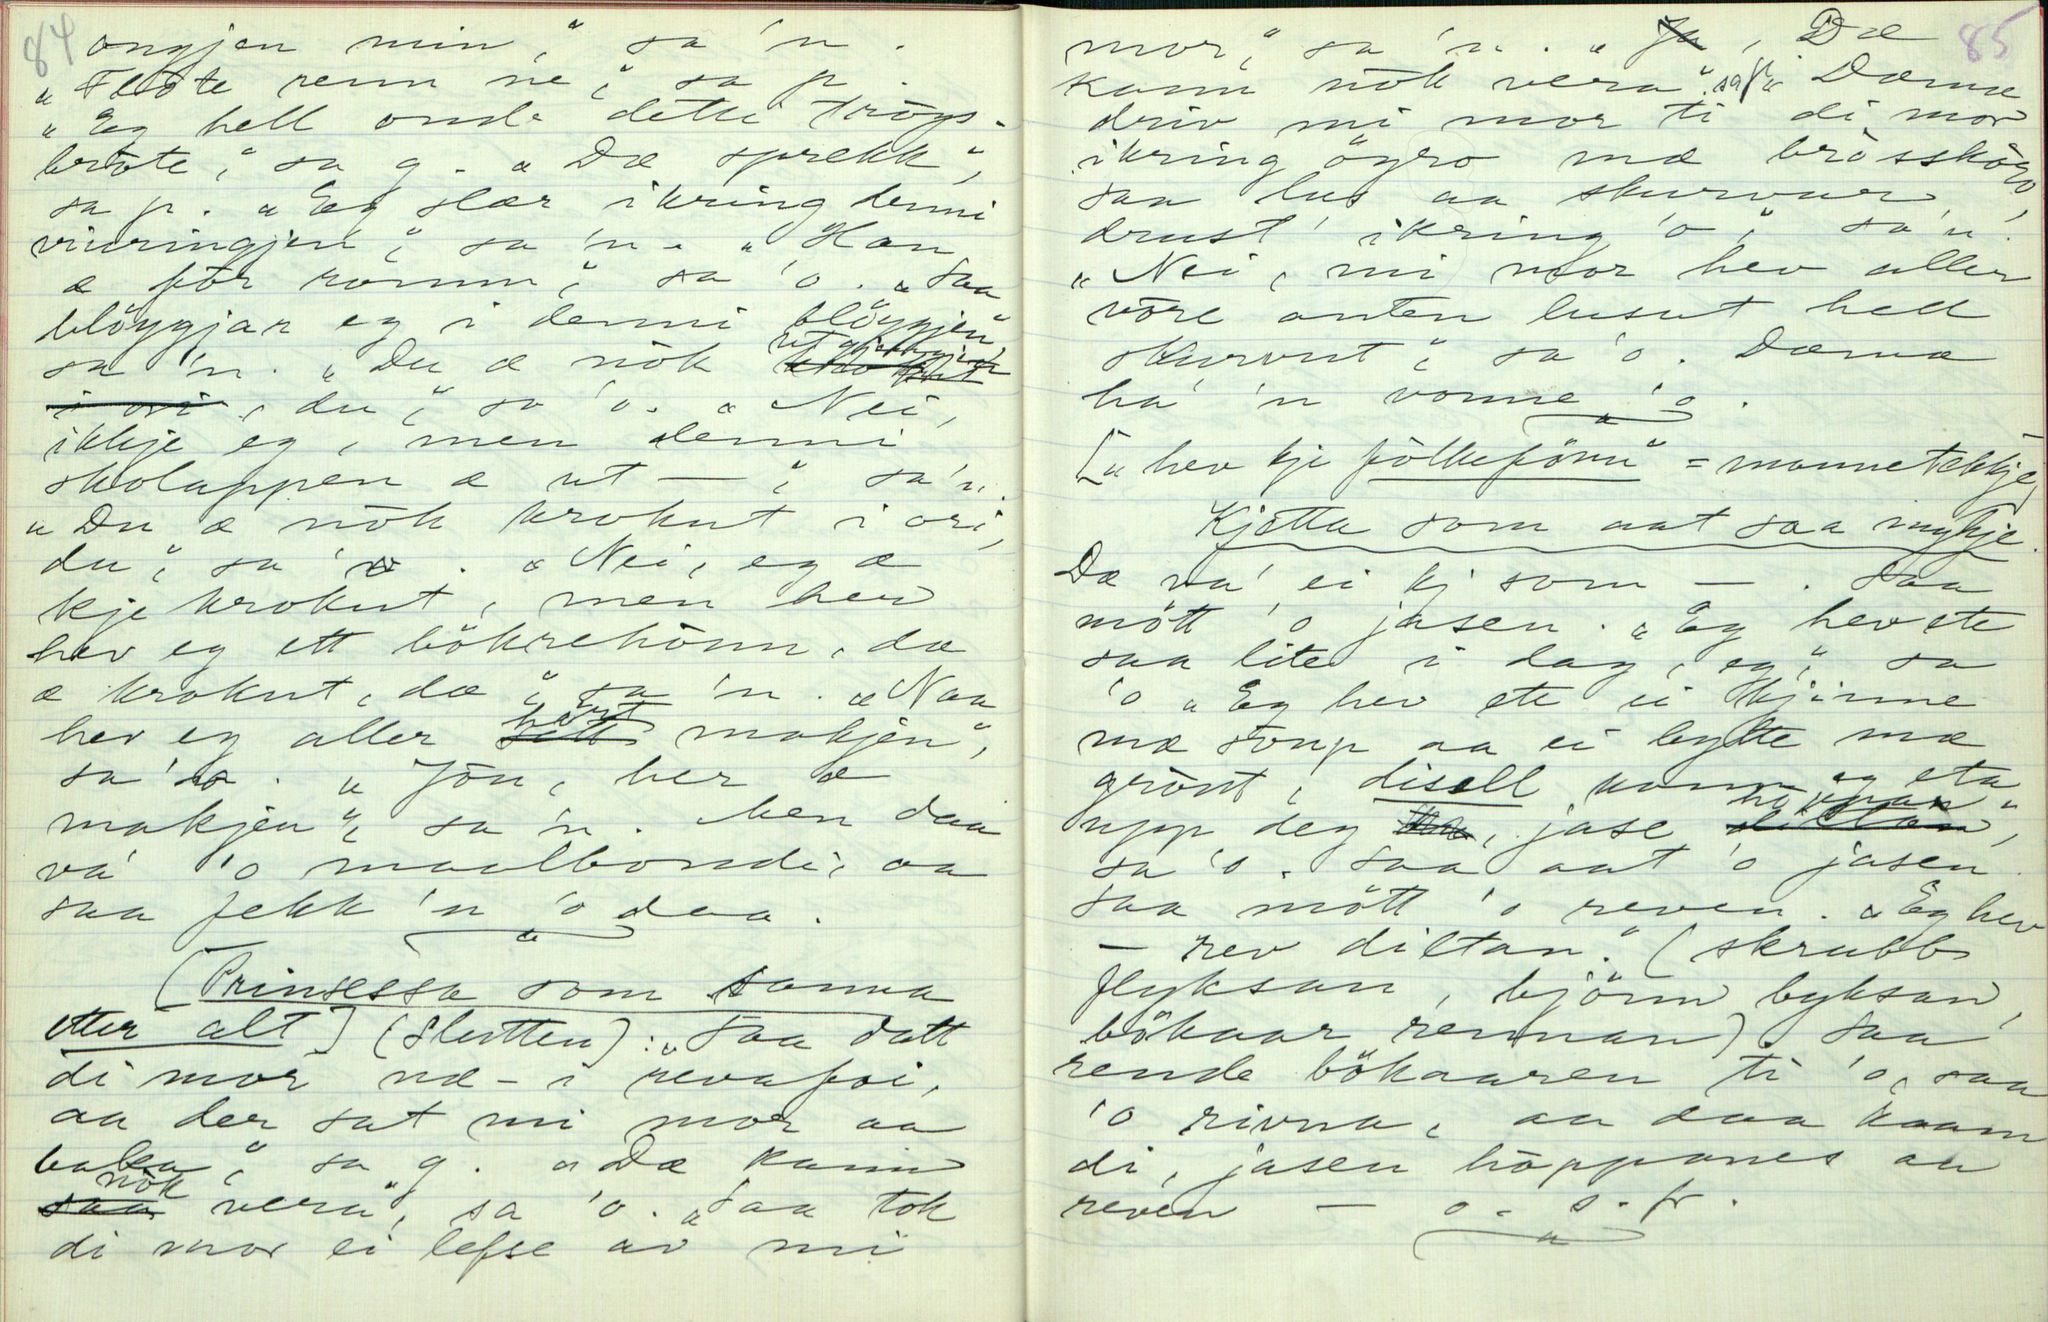 84
ongjen min," sa 'n.
"Flote renn ne," sa p.
"Eg hell onde dette trögs-
bròte," sa g. "Dæ sprekk",
sa pr. "Eg slær ikring denni
viuringjen", sa 'n. "Han
æ för romm," sa 'o. "Saa
blöygjar eg i denni blöygjen"
sa 'n. "Du æ nòk
i ori, du," sa 'o. "Nei,
ikkje eg, men denni
skolappen æ ut —", sa 'n.
"Du æ nòk krokut i ori,
du", sa 'o. "Nei, eg æ
kje krokut, men her
hev eg ett bökrehònn, dæ
æ krokut, dæ", sa 'n. "Naa
hev eg aller hört makjen",
sa 'o. "Jön, her æ
makjen", sa 'n. Men daa
va' 'o maalbondi, aa
saa fekk 'n 'o daa.
[Prinsessa som sanna
etter alt] (Slutten): "Saa datt
di mor næ- i revafoi,
aa der sat mi mor aa
baka", sa g. "Dæ kann
saa nòk vera", sa 'o. "Saa tok
di mor ei lefse av mi
85
mor," sa 'n. "Ja, Dæ
kann nòk vera" sa pr. "Dæme
driv mi mor ti di mor
ikring öyro mæ brösskòro,
saa lus aa skurvur
drust' ikring 'o", sa 'n.
"Nei, mi mor hev aller
vòre anten lusut hell
skurvut", sa 'o. Dæmæ
ha' 'n vonne 'o.
["hev kje fölkeförm" = mannetekkje]
Kjötta som aat saa mykje.
Dæ va' ei kj som —. Saa
mött 'o jasen. "Eg hev ete
saa lite i dag, eg", sa
'o "Eg hev ete ei kjinne
mæ soup aa ei bytte mæ
gròut, disell kann eg eta
upp deg, jase höppan",
sa 'o. Saa aat 'o jasen.
Saa mött 'o reven. "Eg hev
— rev diltan." (skrubb
flyksan, bjönn byksan,
bökaar rennan) Saa
rende bökaaren ti 'o, saa
'o rivna, aa daa kaam
di, jasen höppanes aa
reven — o. s. fr.